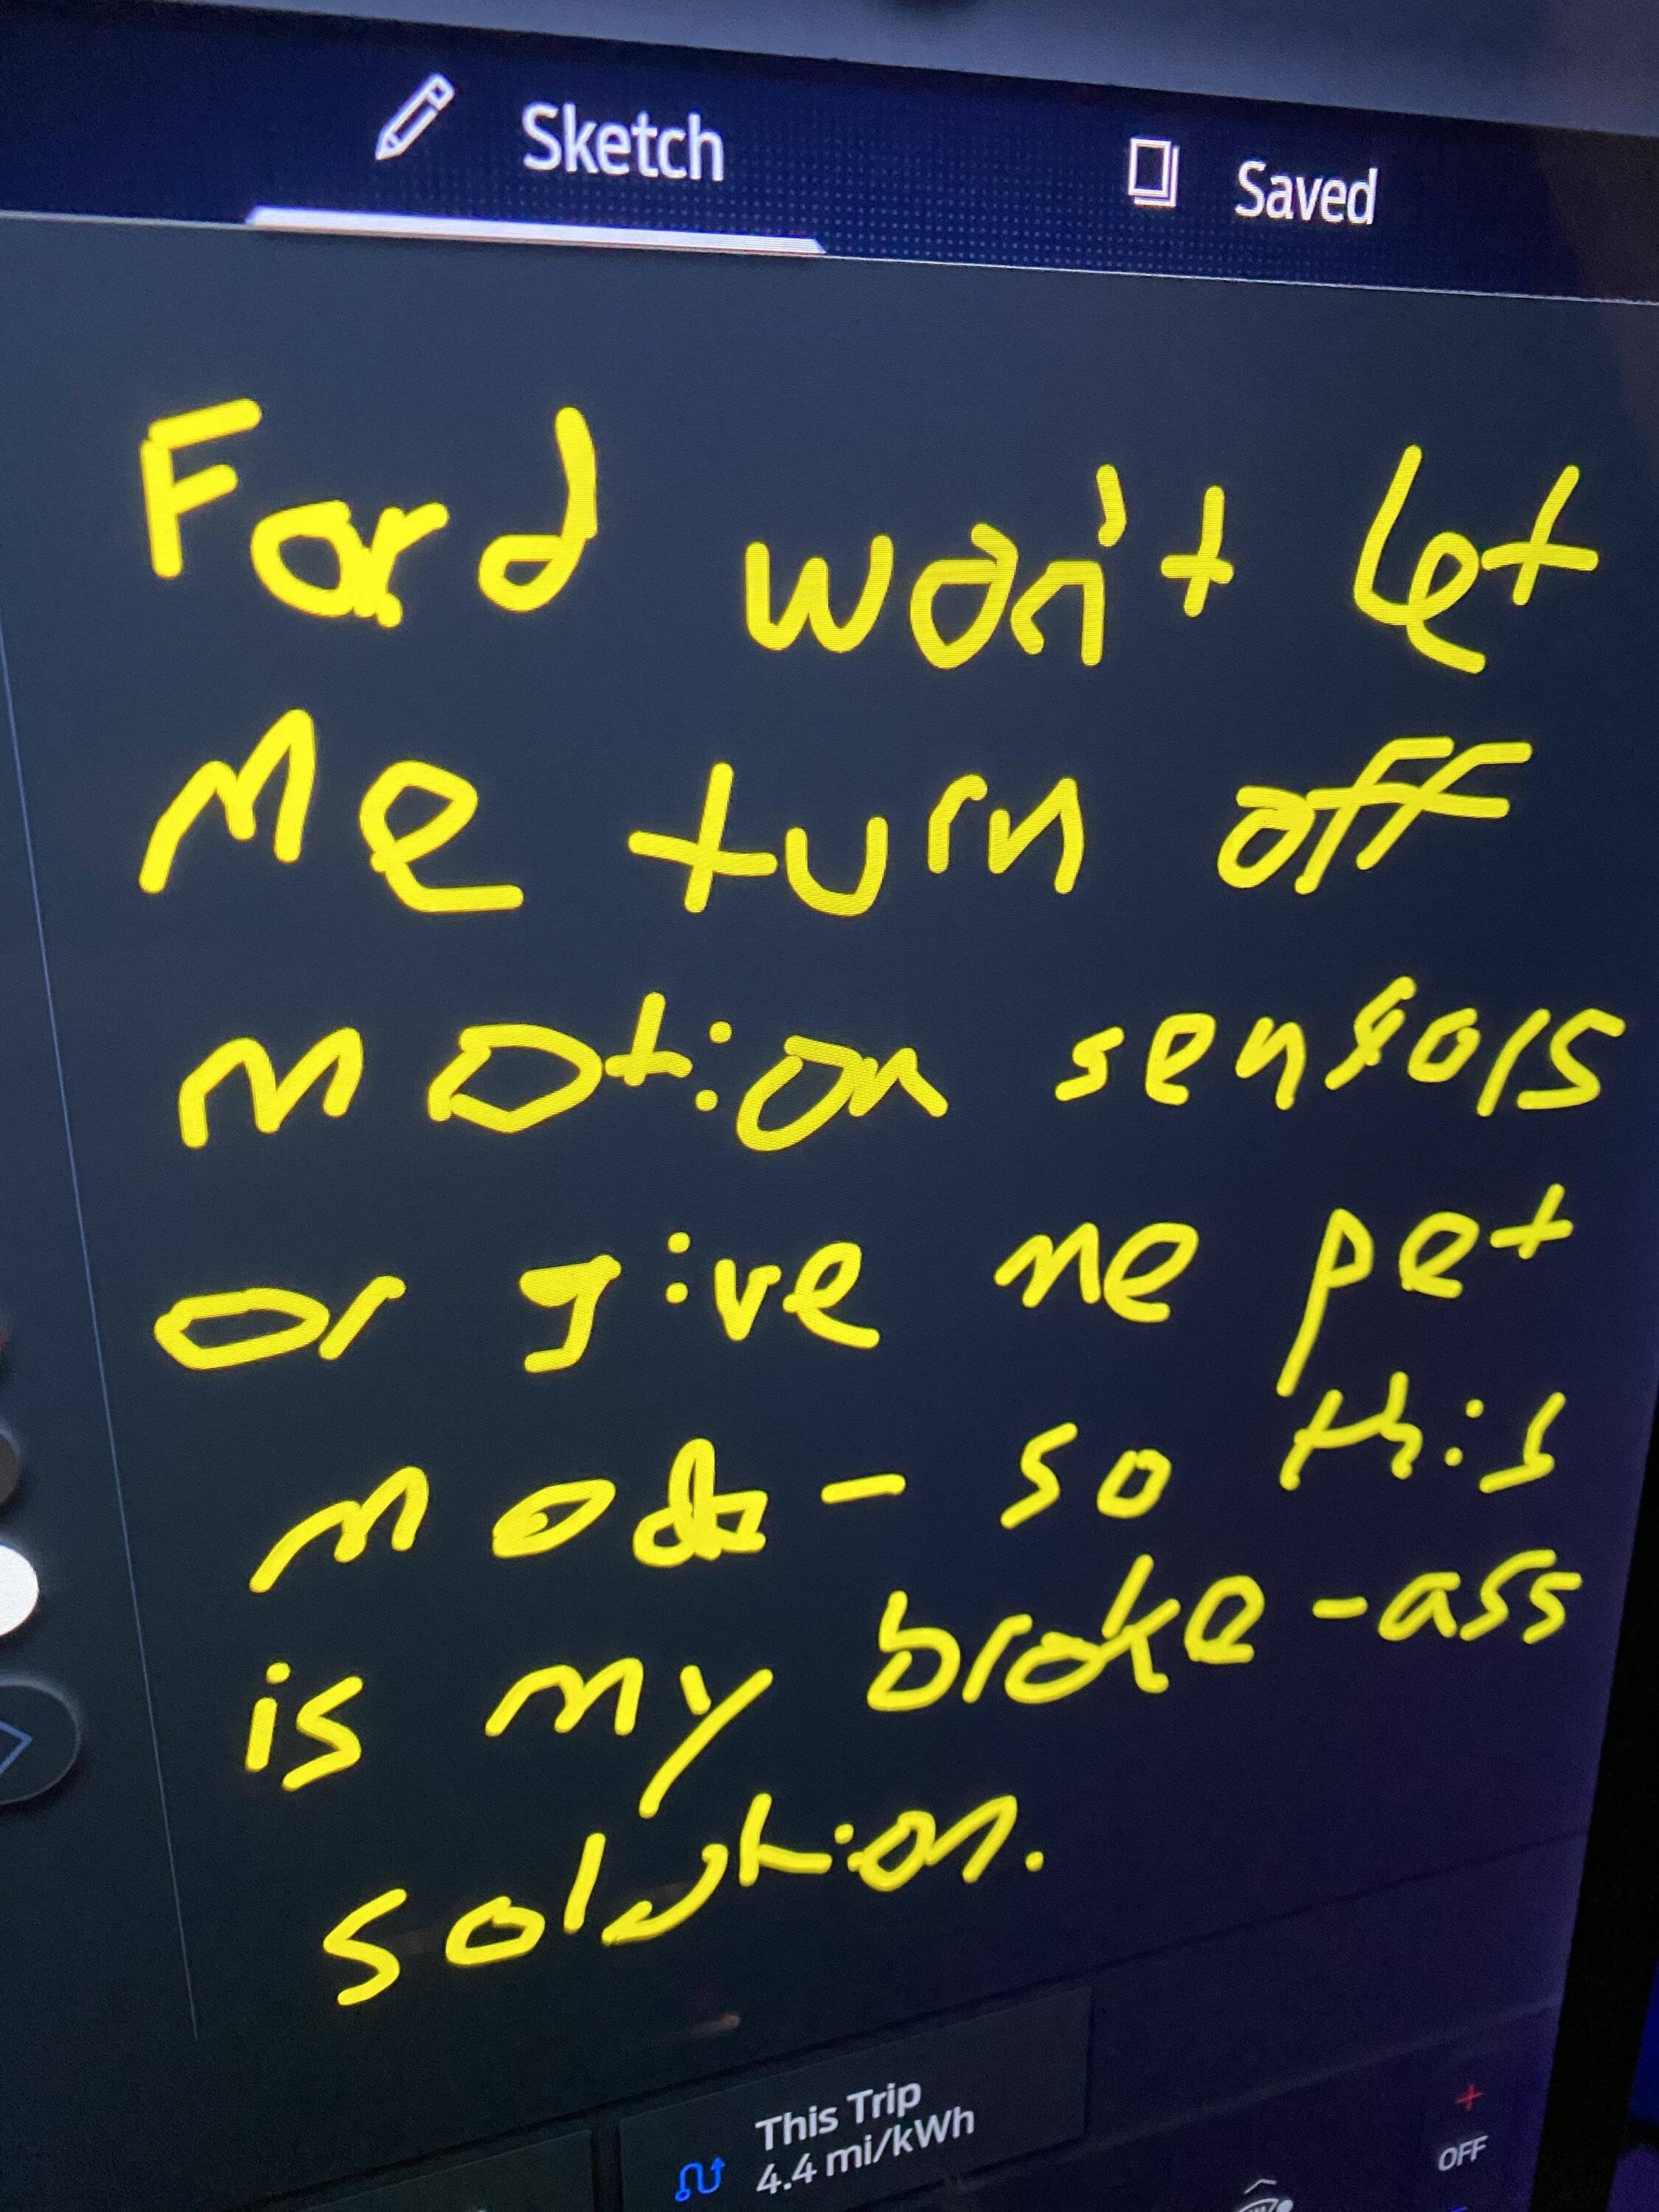 Sketch
Saved
Ford won't let
me turn off
motion sensors
or give me pet
mode - so this
is my broke-ass
solution.
This Trip
4.4 mi/kWh
+
OFF